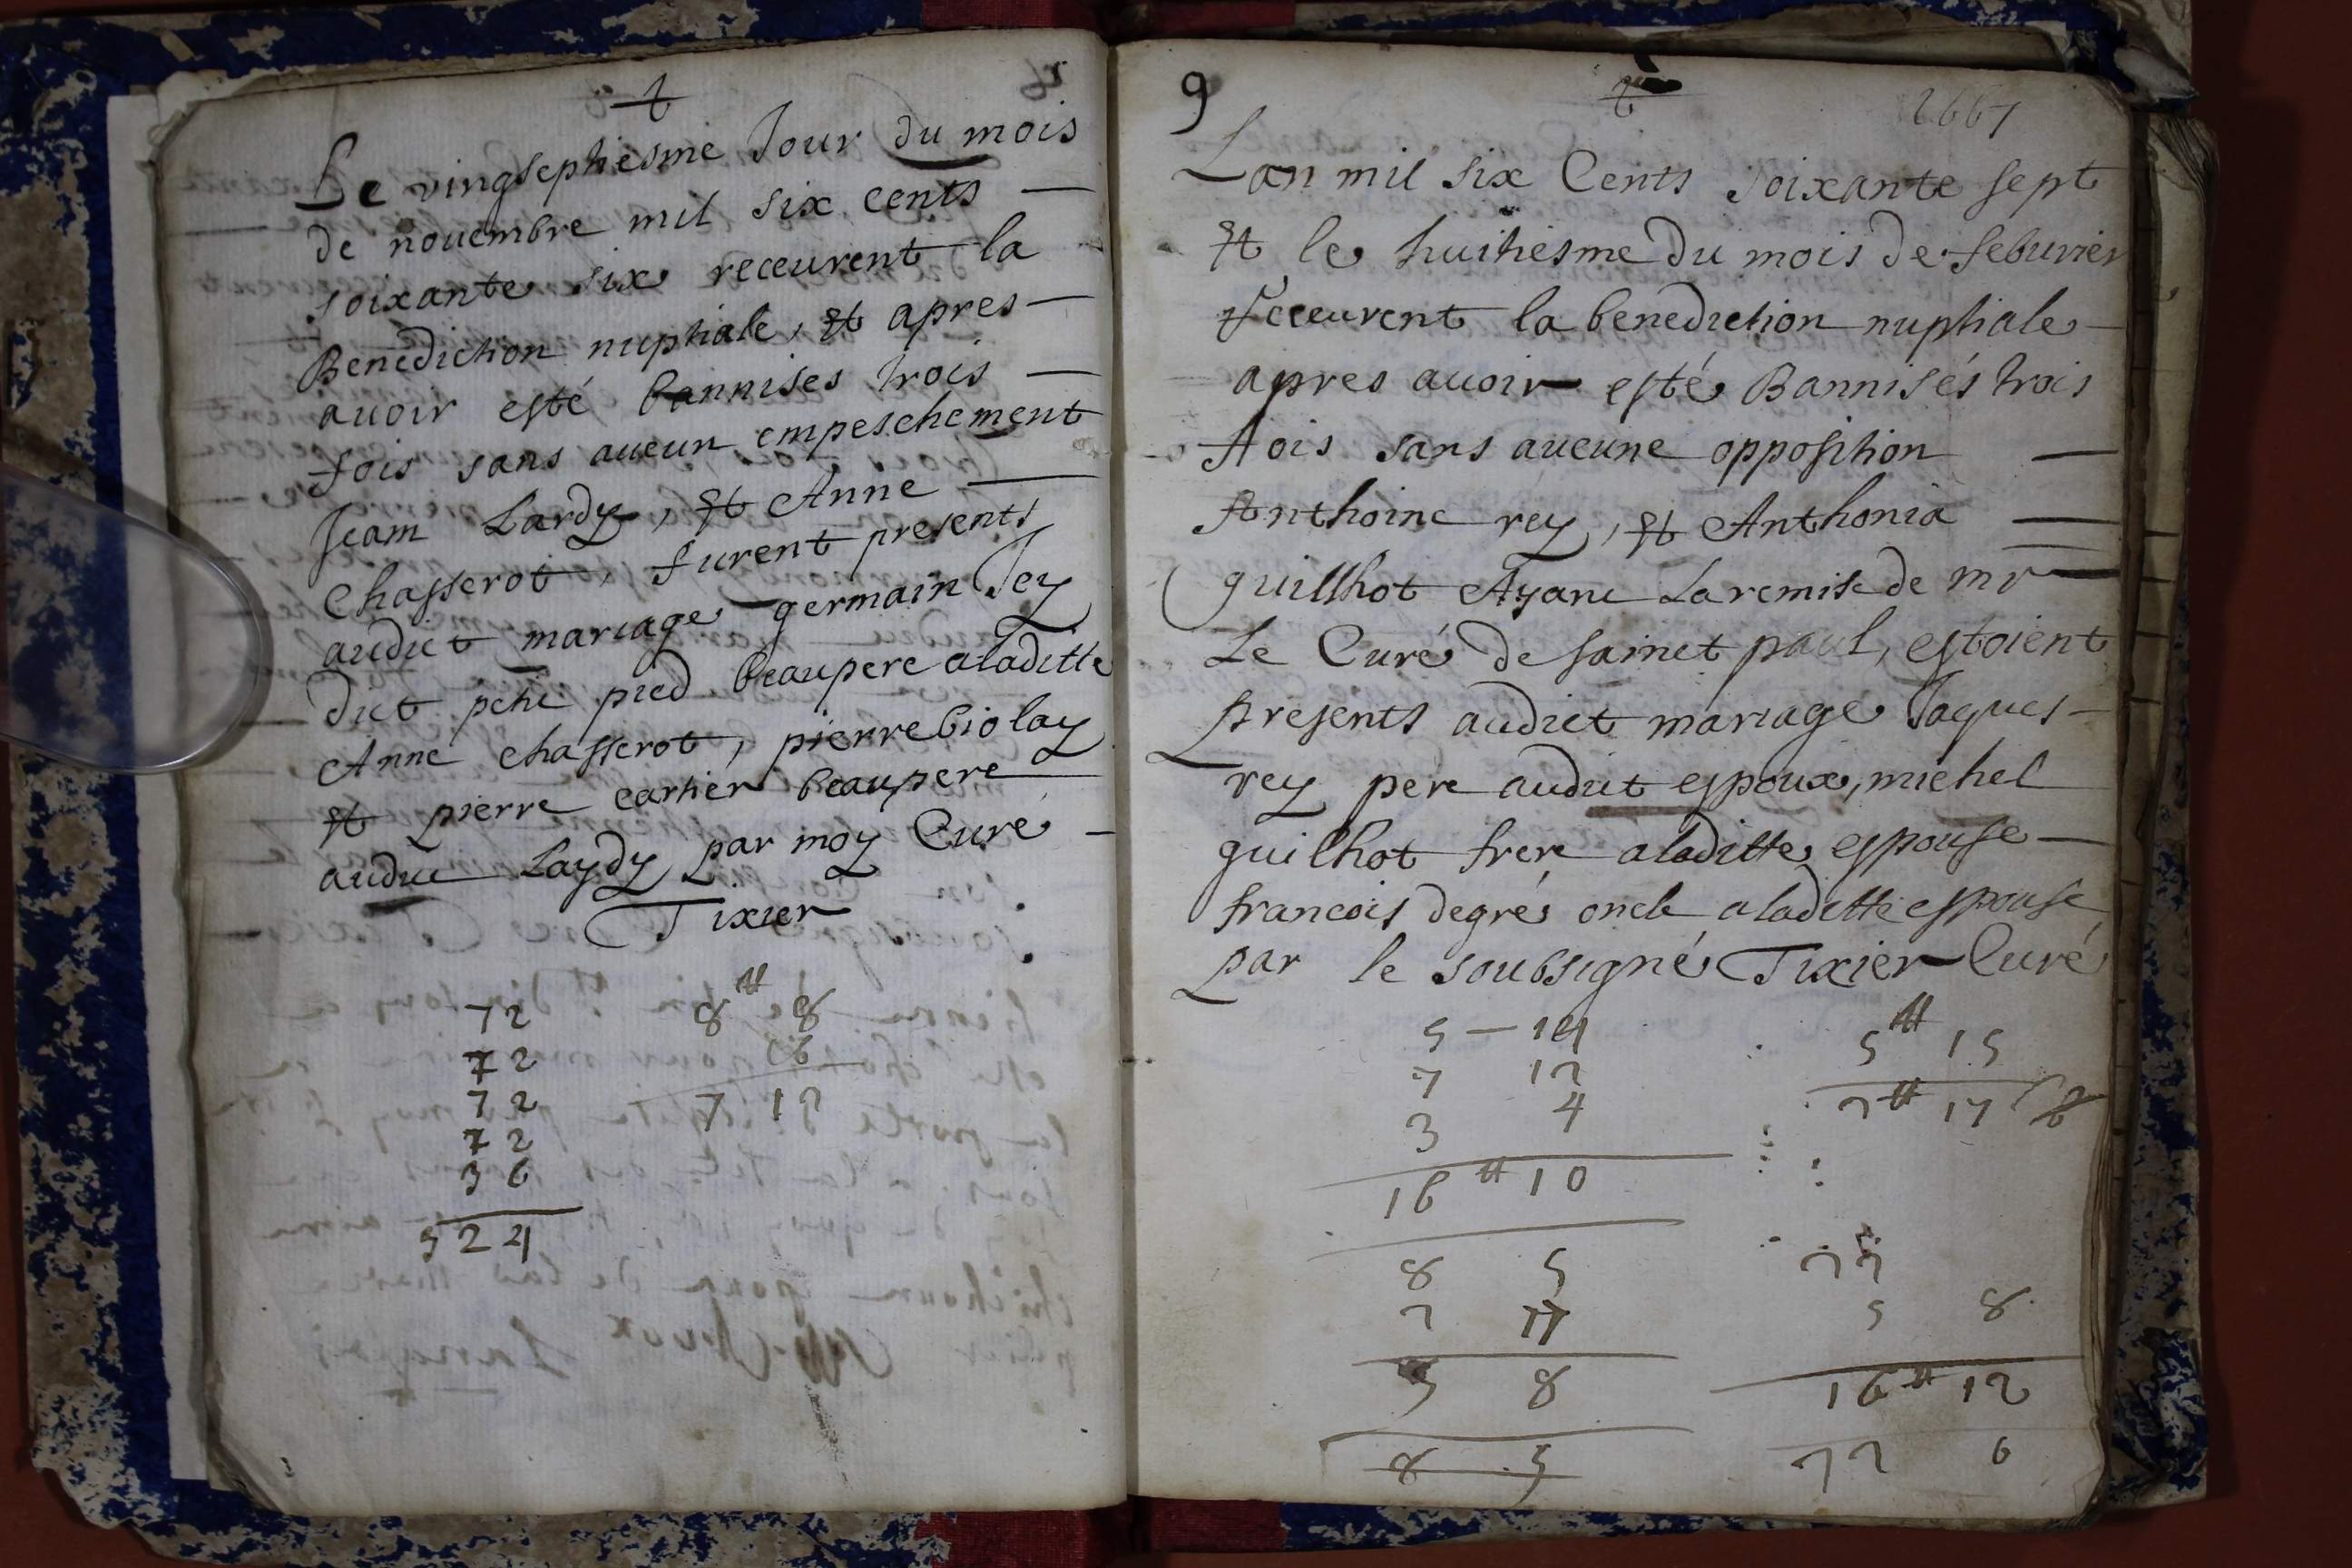 t
Le vingsephiesme Jour du mois
de nouembre mil six cents —
soixante six receurent la
Benediction nuptiale, et apres —
auoir esté bannises trois —
fois sans aucun empeschement
Jeam Lardy, et Anne —
Chasserot, furent presents
audict mariage germain Jey
dict petit pied beaupere aladitte
Anne chasserot, pierre biolay
et pierre cartier beaupere
audict Laydy par moy Curé —
Tixier
72
72
72
72
36
524
8 ₶ 8
7 12
9
1667
Lan mil six Cents soixante sept
et le huitiesme du mois de feburier
Receurent la benediction nuptiale —
apres auoir esté Bannisés trois
fois sans aucune opposition —
Anthoine rey, et Anthonia —
guillhot Ayant La remise de mr
Le Curé de sainct paul, estoient
presents audict mariage Jaques —
rey pere audict espoux, michel
guilhot frere aladitte espouse —
francois degrés oncle aladitte espouse
par le soubsigné Tixier Curé
5 — 14
7 12
3 4
16 ₶ 10
8 5
2 17
5 8
8 5
5 ₶ 15
2 ₶ 17
22
5 8
16 ₶ 12
22 6